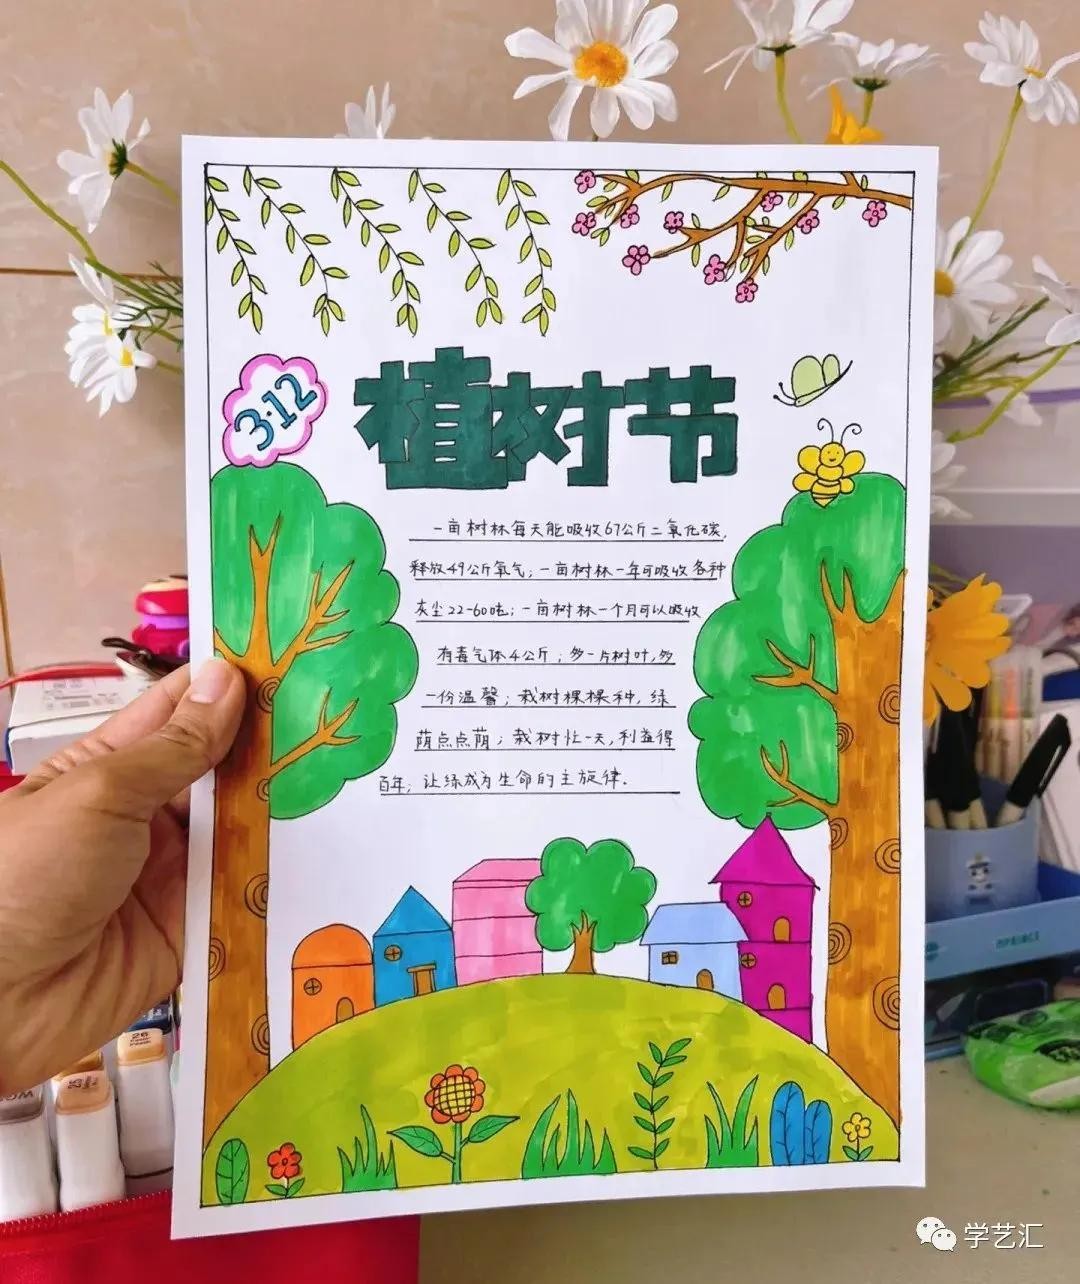 3·12
植树节
一亩树林每天能吸收67公斤二氧化碳,
释放49公斤氧气;一亩树林一年可吸收各种
灰尘22-60吨;一亩树林一个月可以吸收
有毒气体4公斤;多一片树叶,多
一份温馨;栽树棵棵种,绿
荫点点荫;栽树忙一天,利益得
百年;让绿成为生命的主旋律.
26
学艺汇